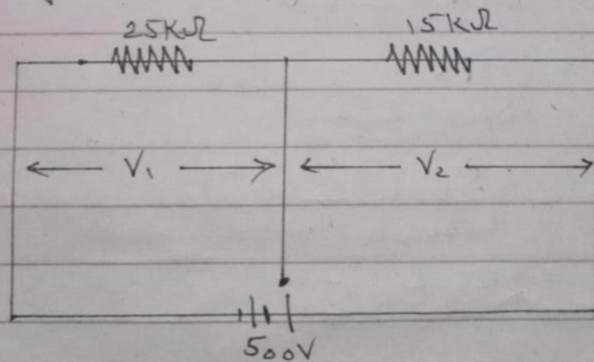 25KΩ 15KΩ
V₁ V₂
500V